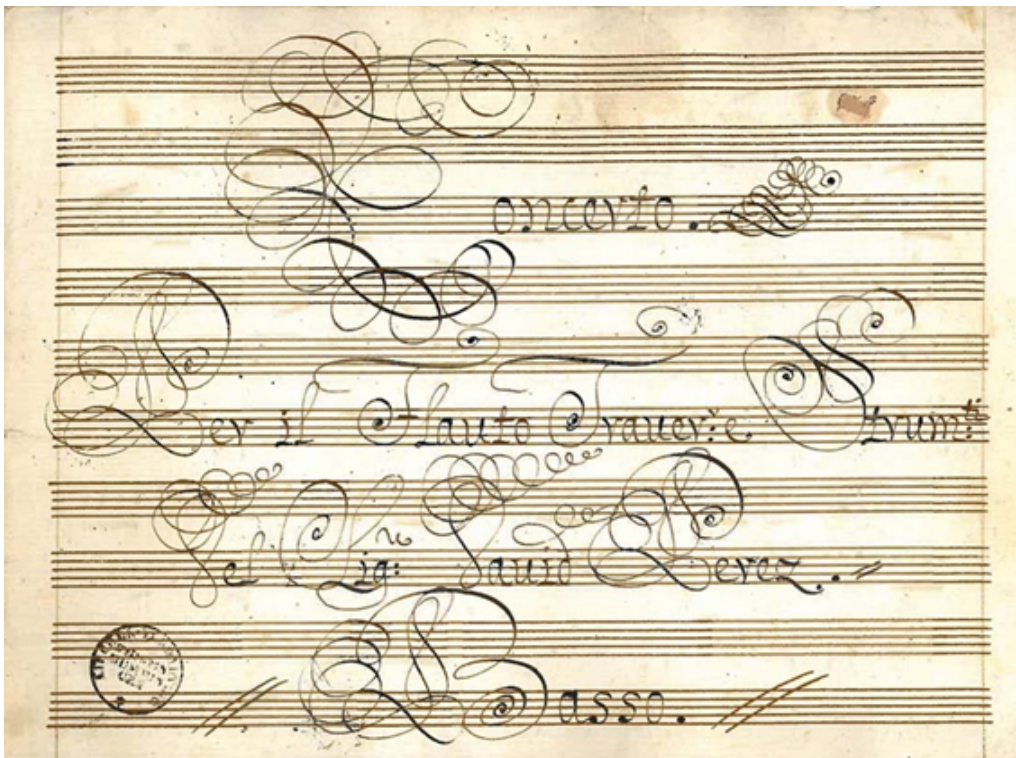 Concerto.
Per il Flauto Trauer:e Strum:ti
Del Sig:re David Perez..
Basso.